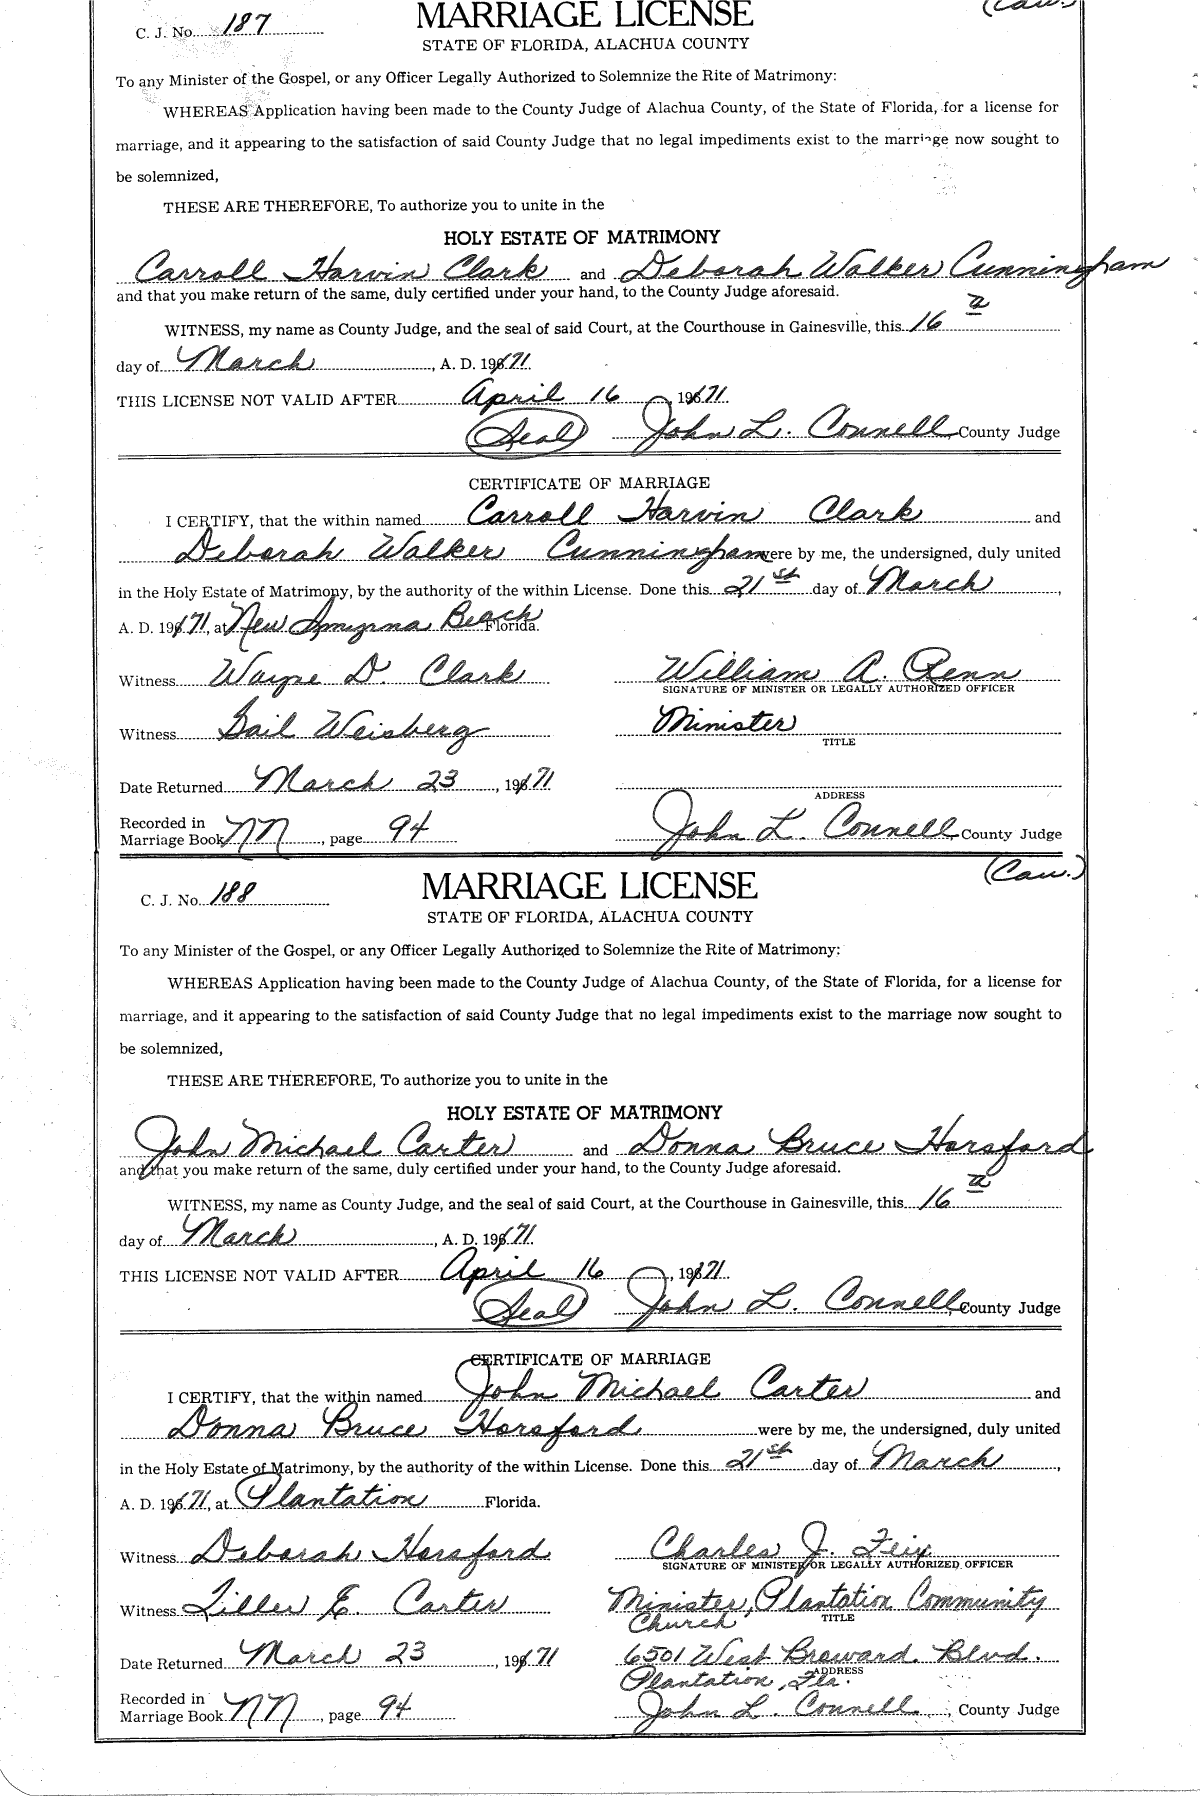 (Cau.)
C. J. No. 187 MARRIAGE LICENSE
STATE OF FLORIDA, ALACHUA COUNTY
To any Minister of the Gospel, or any Officer Legally Authorized to Solemnize the Rite of Matrimony:
WHEREAS Application having been made to the County Judge of Alachua County, of the State of Florida, for a license for
marriage, and it appearing to the satisfaction of said County Judge that no legal impediments exist to the marriage now sought to
be solemnized,
THESE ARE THEREFORE, To authorize you to unite in the
HOLY ESTATE OF MATRIMONY
Carroll Harvin Clark and Deborah Walker Cunningham
and that you make return of the same, duly certified under your hand, to the County Judge aforesaid.
WITNESS, my name as County Judge, and the seal of said Court, at the Courthouse in Gainesville, this 16
day of March, A. D. 1971.
THIS LICENSE NOT VALID AFTER April 16, 1971.
(Seal) John L. Connell County Judge
CERTIFICATE OF MARRIAGE
I CERTIFY, that the within named Carroll Harvin Clark and
Deborah Walker Cunningham were by me, the undersigned, duly united
in the Holy Estate of Matrimony, by the authority of the within License. Done this 21st day of March,
A. D. 1971, at New Smyrna Beach Florida.
Witness Wayne D. Clark William A. Renn
SIGNATURE OF MINISTER OR LEGALLY AUTHORIZED OFFICER
Witness Gail Weisberg Minister
TITLE
Date Returned March 23, 1971
ADDRESS
Recorded in
Marriage Book NN, page 94 John L. Connell County Judge
(Cau.)
C. J. No. 188 MARRIAGE LICENSE
STATE OF FLORIDA, ALACHUA COUNTY
To any Minister of the Gospel, or any Officer Legally Authorized to Solemnize the Rite of Matrimony:
WHEREAS Application having been made to the County Judge of Alachua County, of the State of Florida, for a license for
marriage, and it appearing to the satisfaction of said County Judge that no legal impediments exist to the marriage now sought to
be solemnized,
THESE ARE THEREFORE, To authorize you to unite in the
HOLY ESTATE OF MATRIMONY
John Michael Carter and Donna Bruce Horsford
and that you make return of the same, duly certified under your hand, to the County Judge aforesaid.
WITNESS, my name as County Judge, and the seal of said Court, at the Courthouse in Gainesville, this 16
day of March, A. D. 1971.
THIS LICENSE NOT VALID AFTER April 16, 1971.
(Seal) John L. Connell, County Judge
CERTIFICATE OF MARRIAGE
I CERTIFY, that the within named John Michael Carter and
Donna Bruce Horsford were by me, the undersigned, duly united
in the Holy Estate of Matrimony, by the authority of the within License. Done this 21st day of March,
A. D. 1971, at Plantation Florida.
Witness Deborah Horsford Charles J.
SIGNATURE OF MINISTER OR LEGALLY AUTHORIZED OFFICER
Witness E. Carter Minister, Plantation Community
Church TITLE
Date Returned March 23, 1971 6501 West Broward Blvd.
Plantation, Fla. ADDRESS
Recorded in
Marriage Book NN, page 94 John L. Connell, County Judge